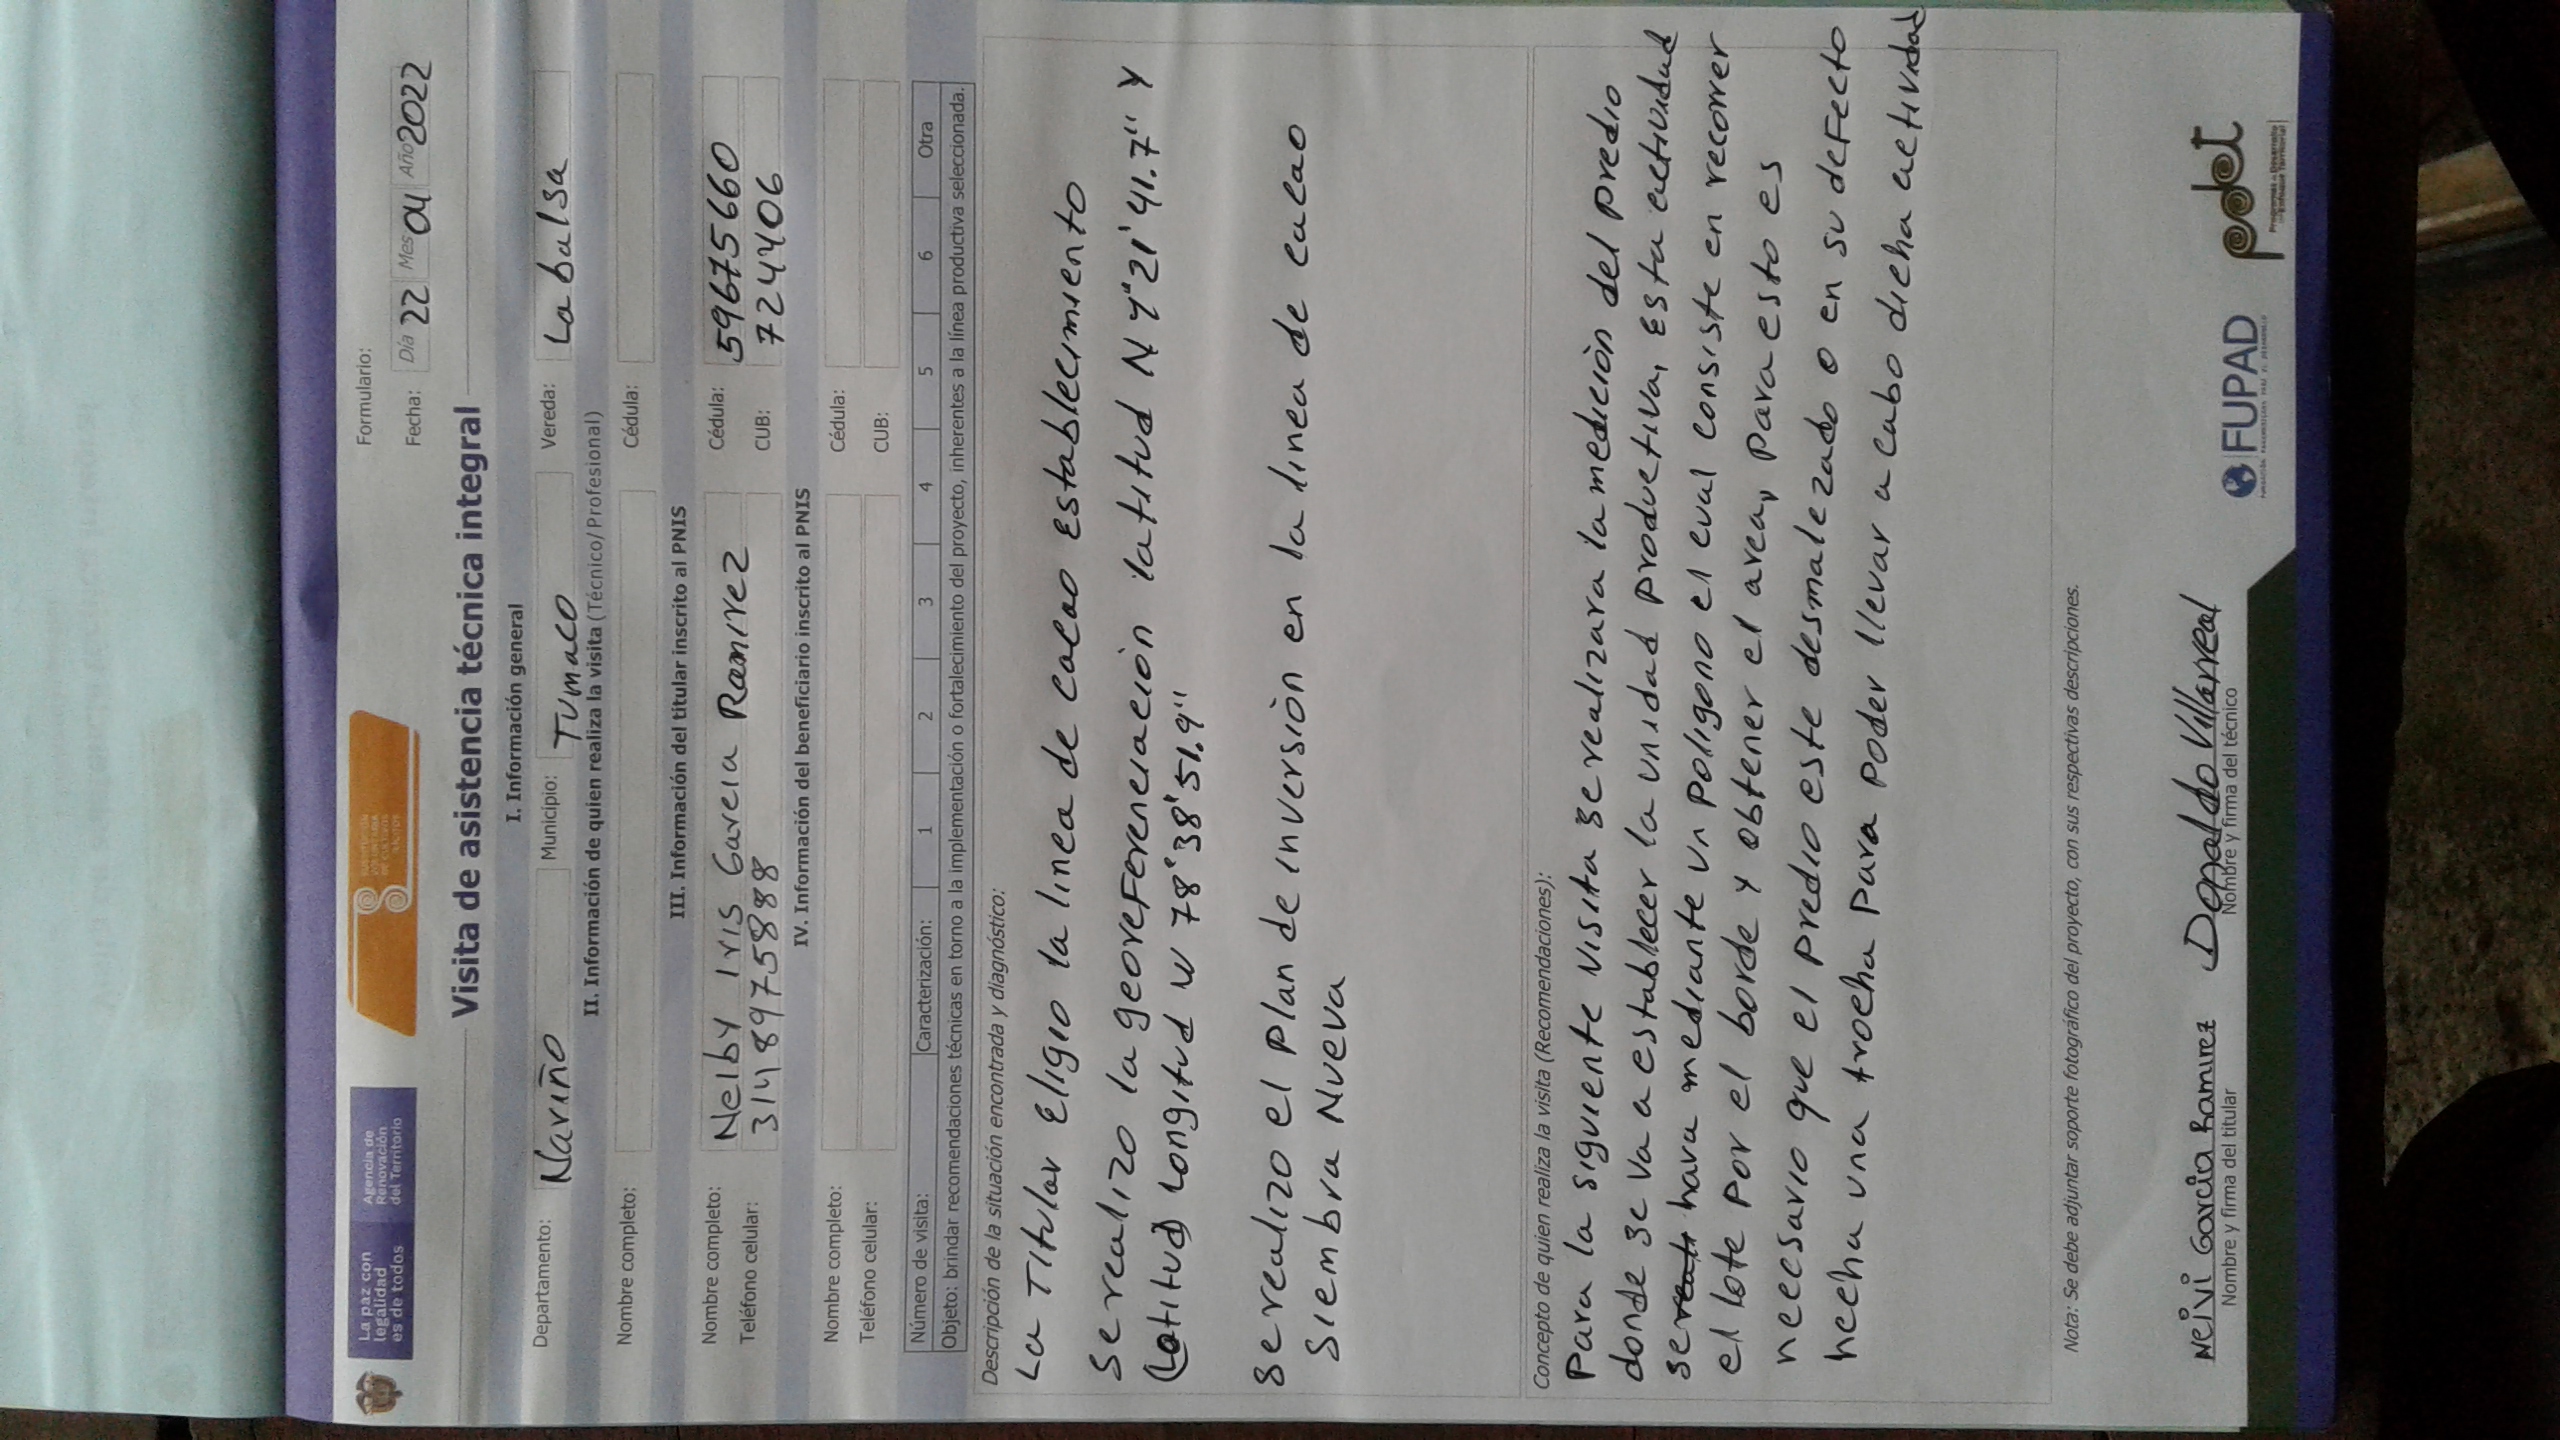 La paz con
legalidad
es de todos
Agencia de
Renovación
del Territorio
Formulario:
Fecha: Día 22 Mes 04 Año 2022
Visita de asistencia técnica integral
I. Información general
Departamento: Nariño Municipio: Tumaco Vereda: La balsa
II. Información de quien realiza la visita (Técnico/ Profesional)
Nombre completo: Cédula:
III. Información del titular inscrito al PNIS
Nombre completo: Nelby Iris Garcia Ramirez Cédula: 59675660
Teléfono celular: 3148975888 CUB: 724406
IV. Información del beneficiario inscrito al PNIS
Nombre completo: Cédula:
Teléfono celular: CUB:
Número de visita: Caracterización: 1 2 3 4 5 6 Otra
Objeto: brindar recomendaciones técnicas en torno a la implementación o fortalecimiento del proyecto, inherentes a la línea productiva seleccionada.
Descripción de la situación encontrada y diagnóstico:
La Titular Eligio la linea de cacao establecimiento
se realizo la georeferenciación latitud N 1°21'41.7" y
Longitud W 78°38'51.9"
se realizo el plan de inversión en la linea de cacao
siembra Nueva
Concepto de quien realiza la visita (Recomendaciones):
Para la siguiente visita se realizara la medición del predio
donde se va a establecer la unidad productiva, esta actividad
se hara mediante un poligono el cual consiste en recorrer
el lote por el borde y obtener el area, para esto es
necesario que el predio este desmalezado o en su defecto
hecha una trocha para poder llevar a cabo dicha actividad
Nota: Se debe adjuntar soporte fotográfico del proyecto, con sus respectivas descripciones.
Neivi Garcia Ramirez Donaldo Villarreal
Nombre y firma del titular Nombre y firma del técnico
FUPAD
pdet